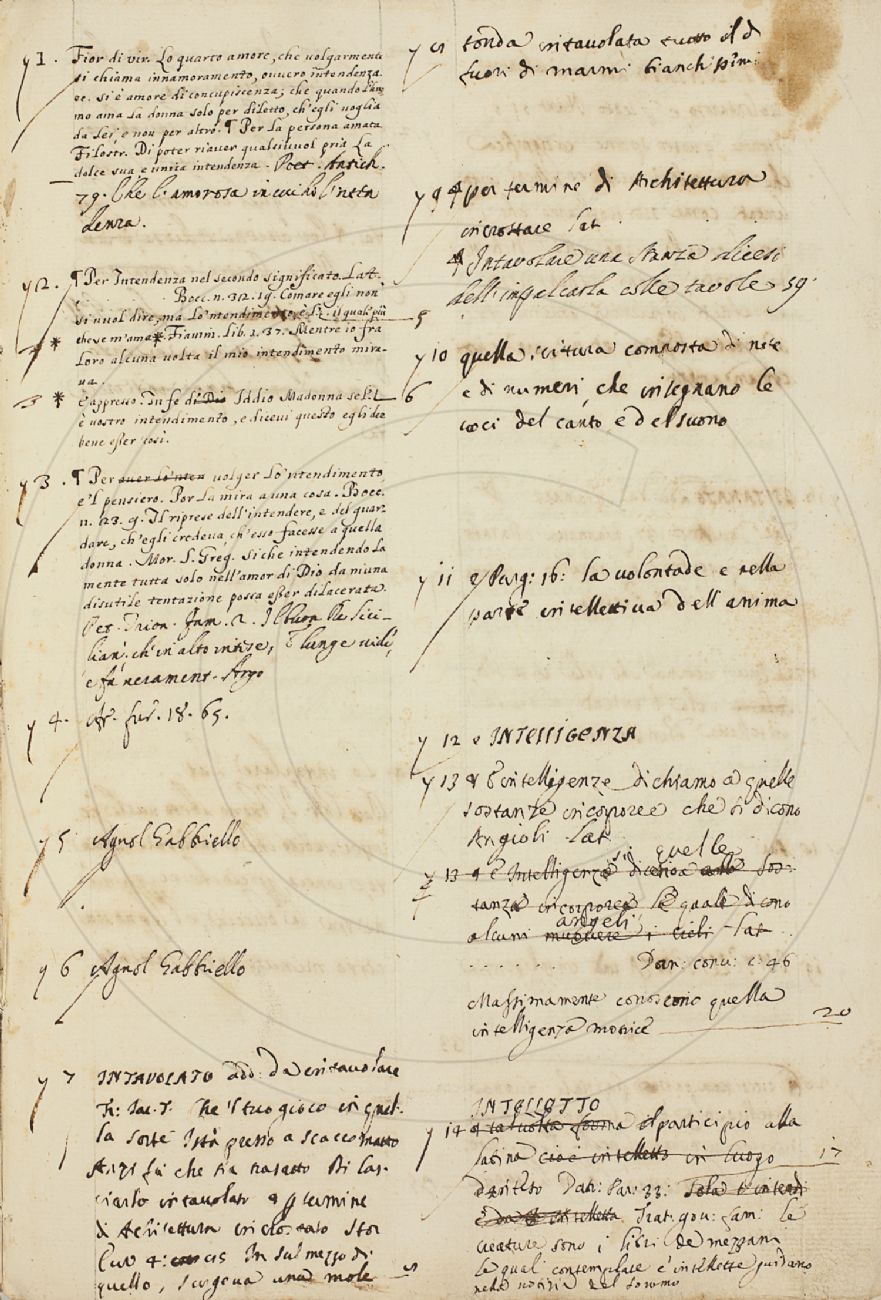 y 1. Fior di vir. Lo quarto amore, che volgarmente
si chiama innamoramento, ovvero intendenza
ec. si è amore di concupiscenza; che quando l'uo-
mo ama la donna solo per diletto, ch'egli voglia
da lei, e non per altro. ¶ Per la persona amata
Filostr. Di poter riaver qualsivuol pria La
dolce sua e unica intendenza. Poet. Antich.
79. Che l'amorosa in cui ho l'inten
denza.
y 2. ¶ Per Intendenza nel secondo significato. Latt.
Bocc. n. 32. 19. Comare egli non
si vuol dire, ma lo 'ntendimento, è Lì il quale più
che se m'ama. Fiamm. Lib. 1. 37. Mentre io fra
Loro alcuna volta il mio intendimento mira-
va.
3 * E appresso. In fe di Dio Iddio Madonna se l'è
è vostro intendimento, e dicevi questo egli dee
bene esser così.
y 3. ¶ Per aver lo 'nten volger Lo 'ntendimento,
e 'l pensiero. Por La mira a una cosa. Bocc.
n. 23. 9. Il riprese dell'intendere, e del guar-
dare, ch'egli credeva ch'esso facesse a quella
donna. Mor. S. Greg. Si che intendendo La
mente tutta solo nell'amor di Dio da niuna
disutile tentazione possa esser dilacerata.
Pet. Trion. Fam. 2. Il buon Re Sici-
lian, ch'in alto intese, E lunge vide,
e fu veramente Argo
y 4. Ar. fur. 18. 65.
y 5 Agnol Gabbriello
y 6 Agnol Gabbriello
y 7 INTAVOLATO add: da intavolare
Che 'l tuo gioco in quel-
la sorte Istà presso a scaccomatto
Anzi fu che tu
ciarlo intavolato termine
di Architettura incrostato Stor
Eur 4: In sul mezzo di
quello, sorgeva una mole
tonda intavolata tutto il di
fuori di marmi bianchissimi
y 9 per termine di Architettura
incrostare Lat.
¶ Intavolare una stanza dicesi
dell'impalcarla colle tavole 59.
5
y 10 quella scrittura composta di note
6 e di numeri, che insegnano le
voci del canto e del suono
y 11 e Purg: 16: la volontade e nella
parte intellettiva dell'anima
y 12 e INTELLIGENZA
y 13 E intelligenze dichiamo a quelle
sostanze incorporee che si dicono
Angioli Lat.
quelle
13 E Intelligenze si dicono alle Sos-
tanze incorporee le quali dicono
angeli
alcuni muovere i cieli Lat . .
. . . . . . Dan: conv: c: 46
Massimamente conoscono quella
intelligenza motrice 20
INTELLOTTO
y 14 talvolta forma il participio alla
latina cioè intelletto in luogo 17
d'inteso Dan: Par: 33: Sola t'intendi
E da te intelletta Trat. gov: fam: le
creature sono i libri de mezzani
le quai contemplate e intellette guidano
nella notizia del sommo